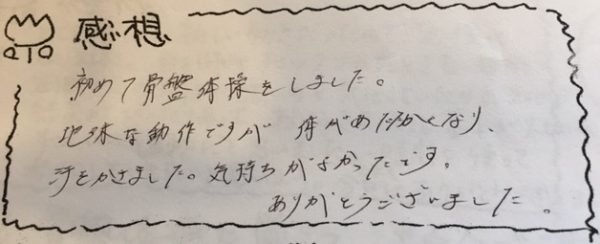 感想
初めて骨盤体操をしました。
地味な動作ですが 体があたたかくなり、
汗をかきました。気持ちがよかったです。
ありがとうございました。